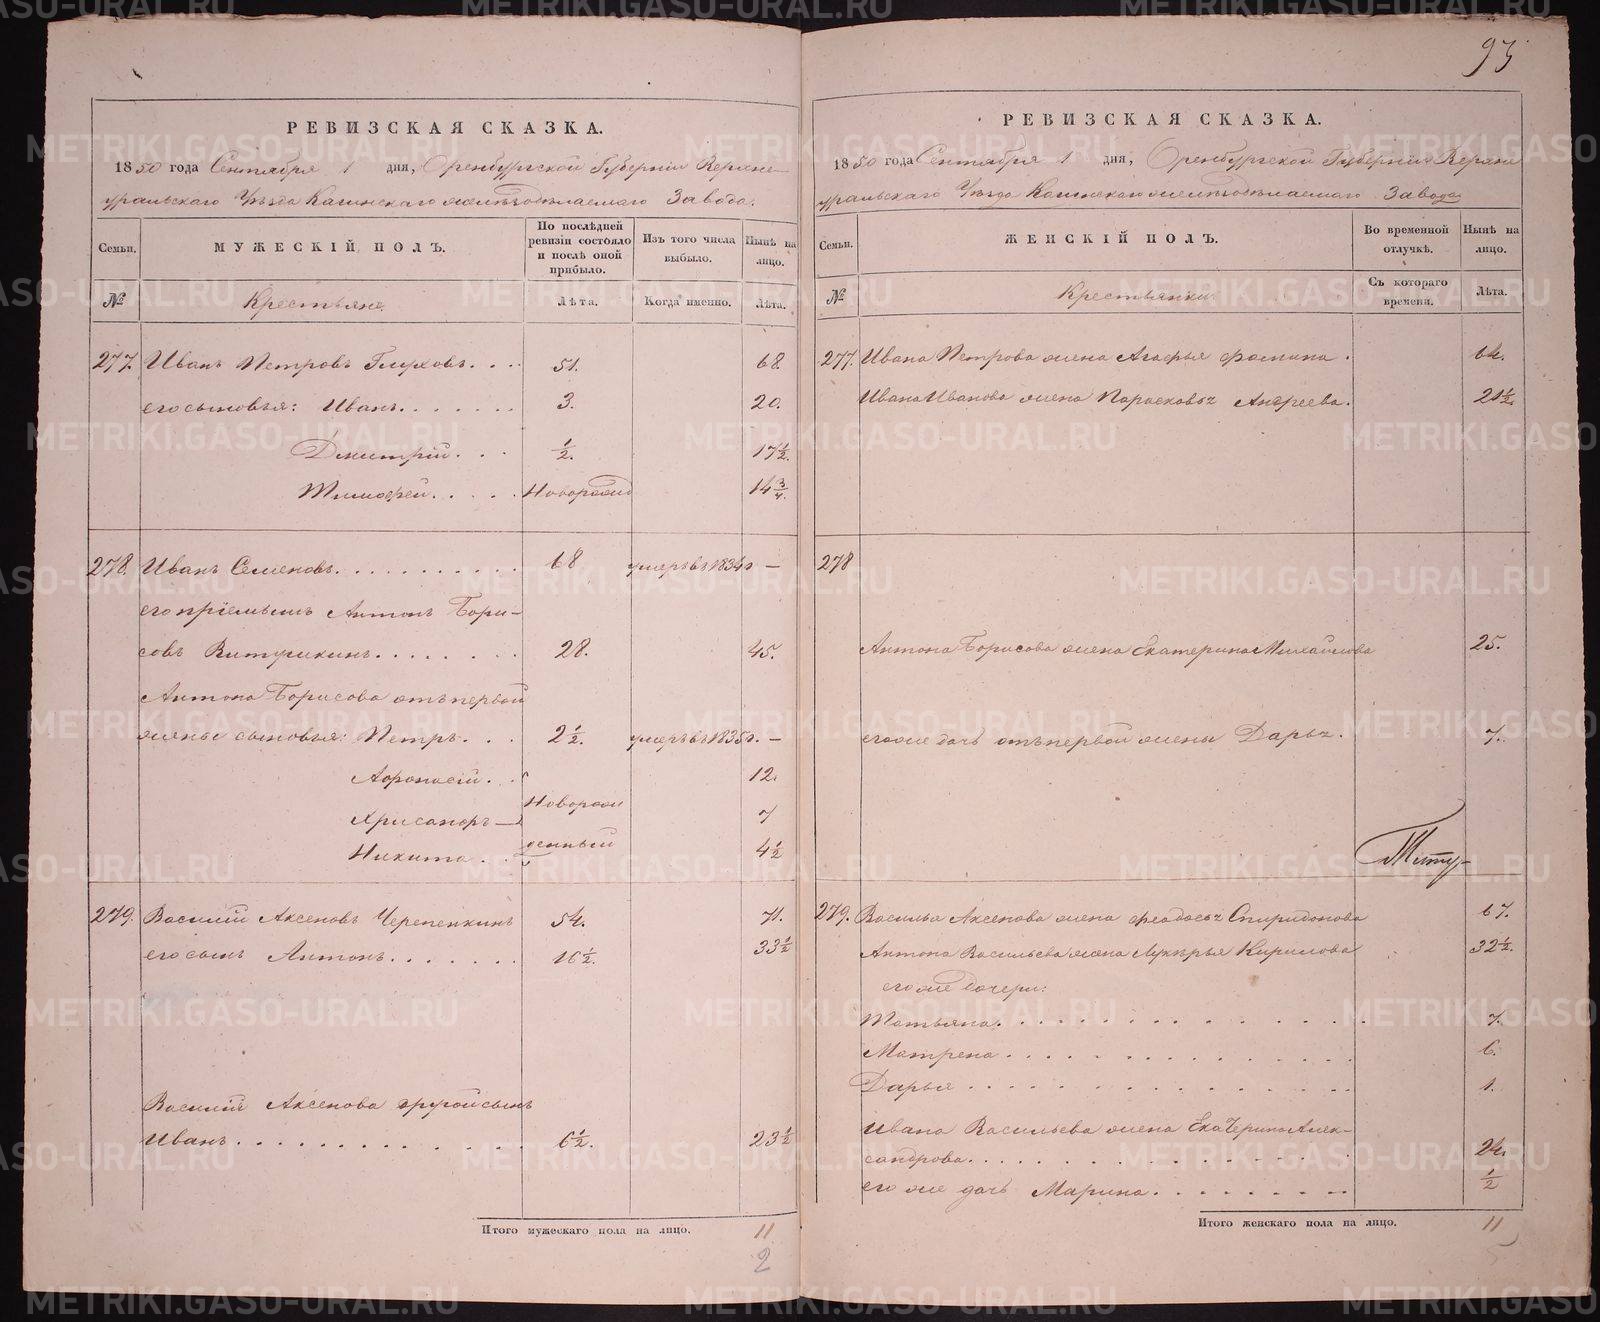 93
РЕВИЗСКАЯ СКАЗКА.
1850 года Сентября 1 дня, Оренбургской Губерніи Верхне-
уральскаго Уѣзда Кагинскаго желѣзодѣлаемаго Завода.
Семьи.
МУЖЕСКІЙ ПОЛЪ.
По послѣдней
ревизіи состояло
и послѣ оной
прибыло.
Изъ того числа
выбыло.
Нынѣ на
лицо.
№
Крестьяне.
Лѣта.
Когда именно.
Лѣта.
277. Иванъ Петровъ Глуховъ. . . 51. 68.
его сыновья: Иванъ. . . . . . . 3. 20.
Дмитрій. . . ½. 17½.
Тимофей. . . . . Новорожд 14¾.
278. Иванъ Семеновъ. . . . . . . . . . 68 умеръ въ 1834 г —
его пріемышъ Антонъ Бори-
совъ Витушкинъ. . . . . . . 28. 45.
Антона Борисова отъ первой
жены сыновья: Петръ. . . 2½. умеръ въ 1835 г. —
Афонасій. . . 12.
Новорож
Хрисанфъ — 7
денный
Никита. . . 4½
279. Василій Аксеновъ Черепенкинъ 54. 71.
его сынъ Антонъ. . . . . . . 16½. 33½
Василія Аксенова другой сынъ
Иванъ. . . . . . . . . . . . . 6½. 23½
Итого мужескаго пола на лицо. 11
2
РЕВИЗСКАЯ СКАЗКА.
1850 года Сентября 1 дня, Оренбургской Губерніи Верхне
уральскаго Уѣзда Кагинскаго желѣзодѣлаемаго Завода
Семьи.
ЖЕНСКІЙ ПОЛЪ.
Во временной
отлучкѣ.
Нынѣ на
лицо.
№
Крестьянки.
Съ котораго
времени.
Лѣта.
277. Ивана Петрова жена Агафья Фомина. 64.
Ивана Иванова жена Парасковья Андреева. 21½.
278
Антона Борисова жена Екатерина Михайлова 25.
его же дочь отъ первой жены Дарья. 7.
Титу-
279. Василья Аксенова жена Феодосья Спиридонова 67.
Антона Васильева жена Лукерья Кирилова 32½.
его же дочери:
Татьяна. . . . . . . . . . . . . 7.
Матрена . . . . . . . . . . . . . 6.
Дарья . . . . . . . . . . . . . 1.
Ивана Васильева жена Екатерина Алек-
сандрова. . . . . . . . . . . . . 24.
его же дочь Марина. . . . . . . . . ½
Итого женскаго пола на лицо. 11
5
METRIKI.GASO-URAL.RU